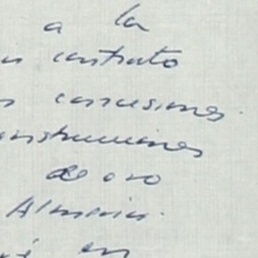 a la
contrato
concesiones.
construcciones
de oro
Almería.
en